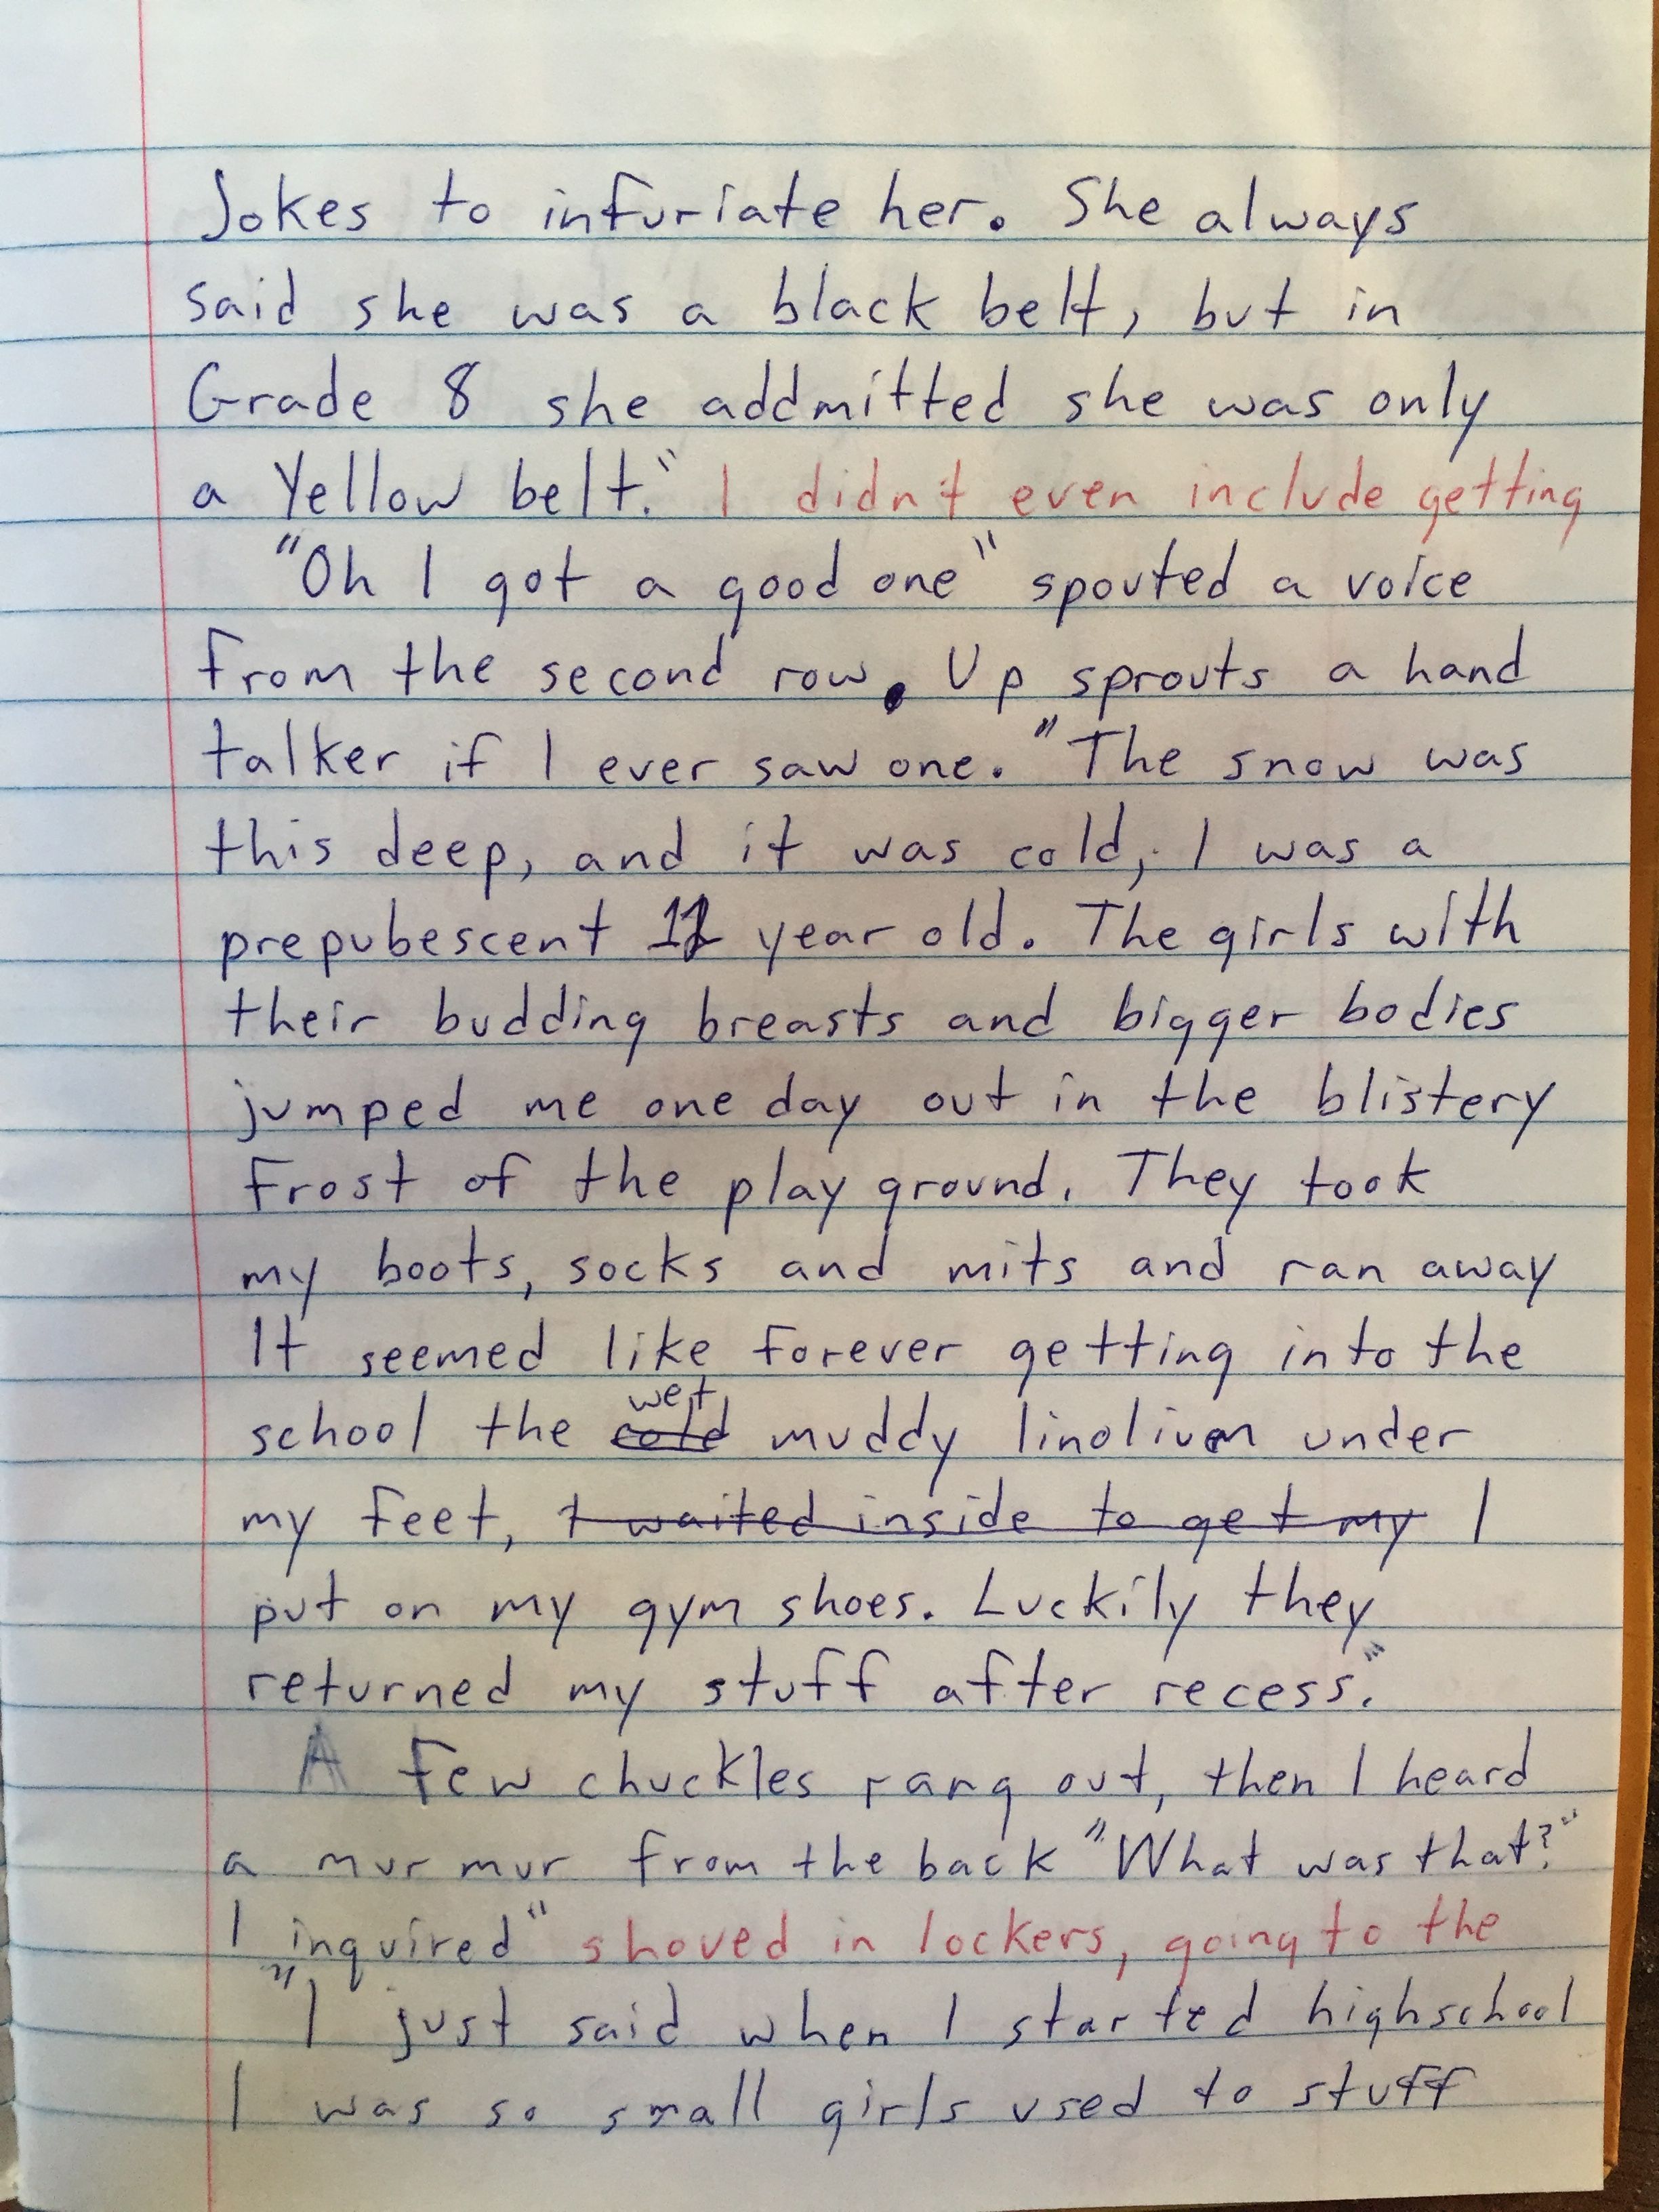 Jokes to infuriate her. She always
said she was a black belt, but in
Grade 8 she addmitted she was only
a Yellow belt." I didn't even include getting
"Oh I got a good one" spouted a voice
from the second row. Up sprouts a hand
talker if I ever saw one. "The snow was
this deep, and it was cold, I was a
prepubescent year old. The girls with
their budding breasts and bigger bodies
jumped me one day out in the blistery
frost of the play ground. They took
my boots, socks and mits and ran away
It seemed like forever getting into the
wet
school the cold muddy linolium under
my feet, I waited inside to get my I
put on my gym shoes. Luckily they
returned my stuff after recess."
A few chuckles rang out, then I heard
a murmur from the back "What was that?"
I inquired" shoved in lockers, going to the
"I just said when I started highschool
I was so small girls used to stuff